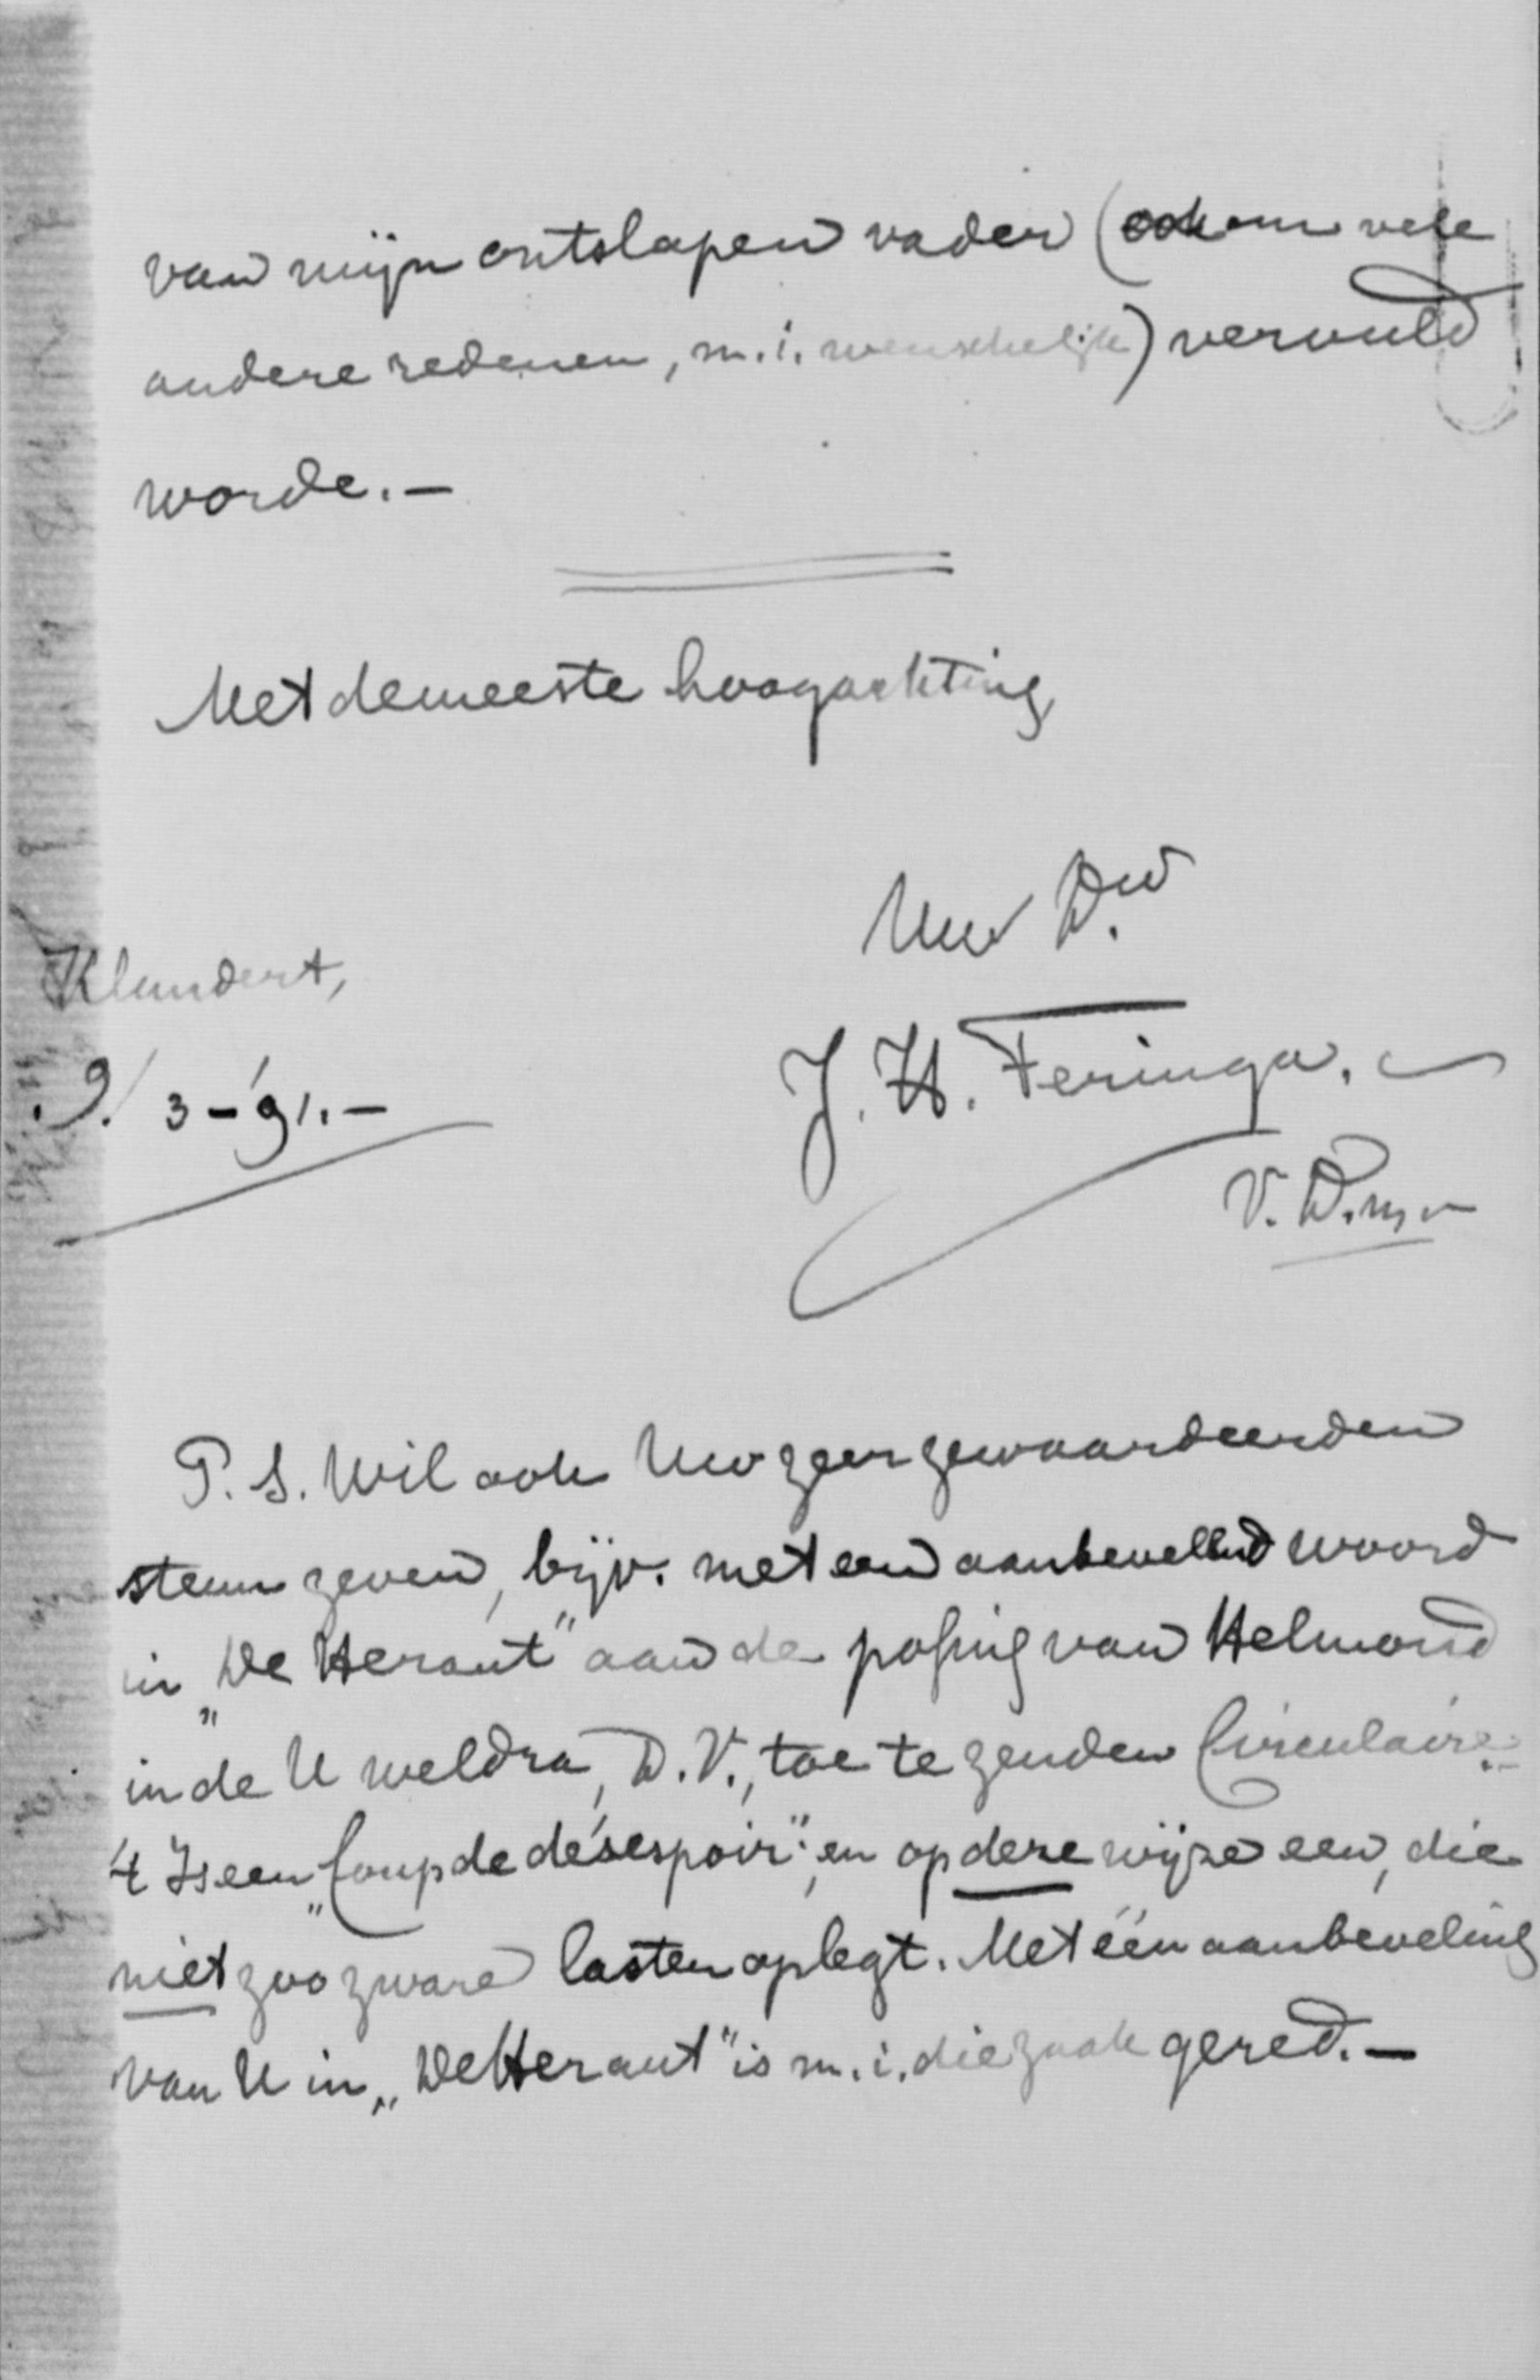 van mijn ontslapen vader (ook om vele
andere redenen, m.i. wenschelijk) vervuld
worde. –
Met de meeste hoogachting,
Uw Dw.
Klundert,
J. H. Feringa.
9/3-'91. –
V. D. m.
P. S. Wil ook Uw zeer gewaardeerden
steun geven, bijv. met een aanbevelend woord
in „De Heraut" aan de poging van Helmond
in de U weldra, D.V., toe te zenden Circulaire.
't Is een „Coup de désespoir"; en op deze wijze een, die
niet zoo zware lasten oplegt. Met één aanbeveling
van U in „De Heraut" is m.i. die zaak gered. –